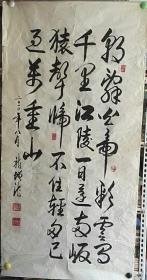 朝辞白帝彩云间
千里江陵一日还两岸
猿声啼不住轻舟已
过万重山
二〇一年八月